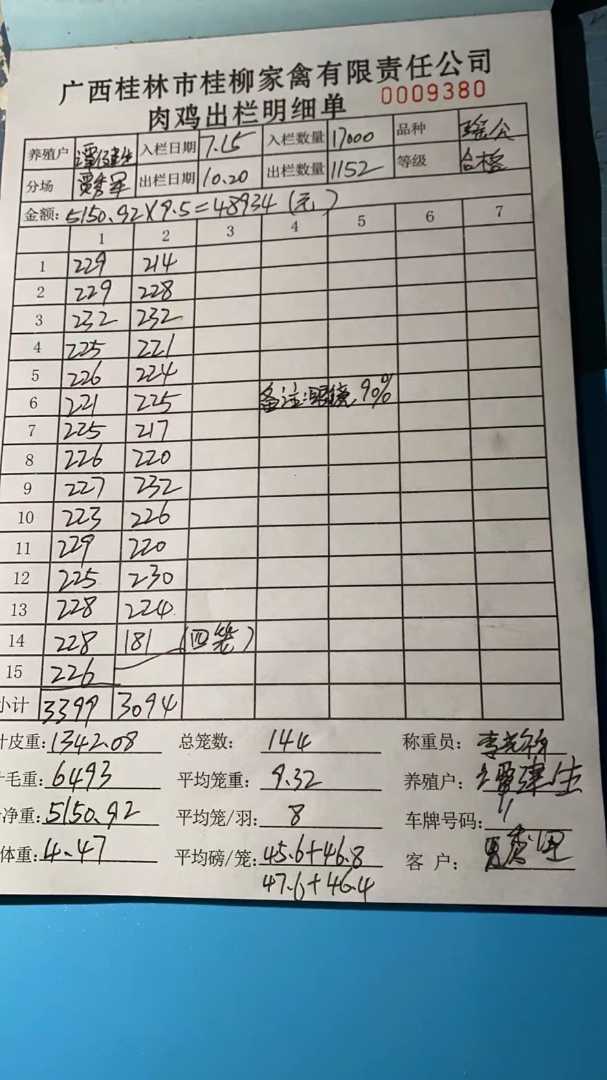 广西桂林市桂柳家禽有限责任公司
肉鸡出栏明细单 0009380
养殖户 入栏日期 7.15 入栏数量 17000 品种
分场 出栏日期 10.20 出栏数量 1152 等级 合格
金额: 5150.92×9.5=48934(元)
1 2 3 4 5 6 7
1 229 214
2 229 228
3 232 232
4 225 221
5 226 224
6 221 225 备注: 90%
7 225 217
8 226 220
9 227 232
10 223 226
11 229 220
12 225 230
13 228 224
14 228 181 (四笼)
15 226
小计 3399 3094
皮重: 1342.08 总笼数: 144 称重员:
毛重: 6493 平均笼重: 9.32 养殖户:
净重: 5150.92 平均笼/羽: 8 车牌号码:
体重: 4.47 平均磅/笼: 45.6+46.8 客户:
47.6+46.4